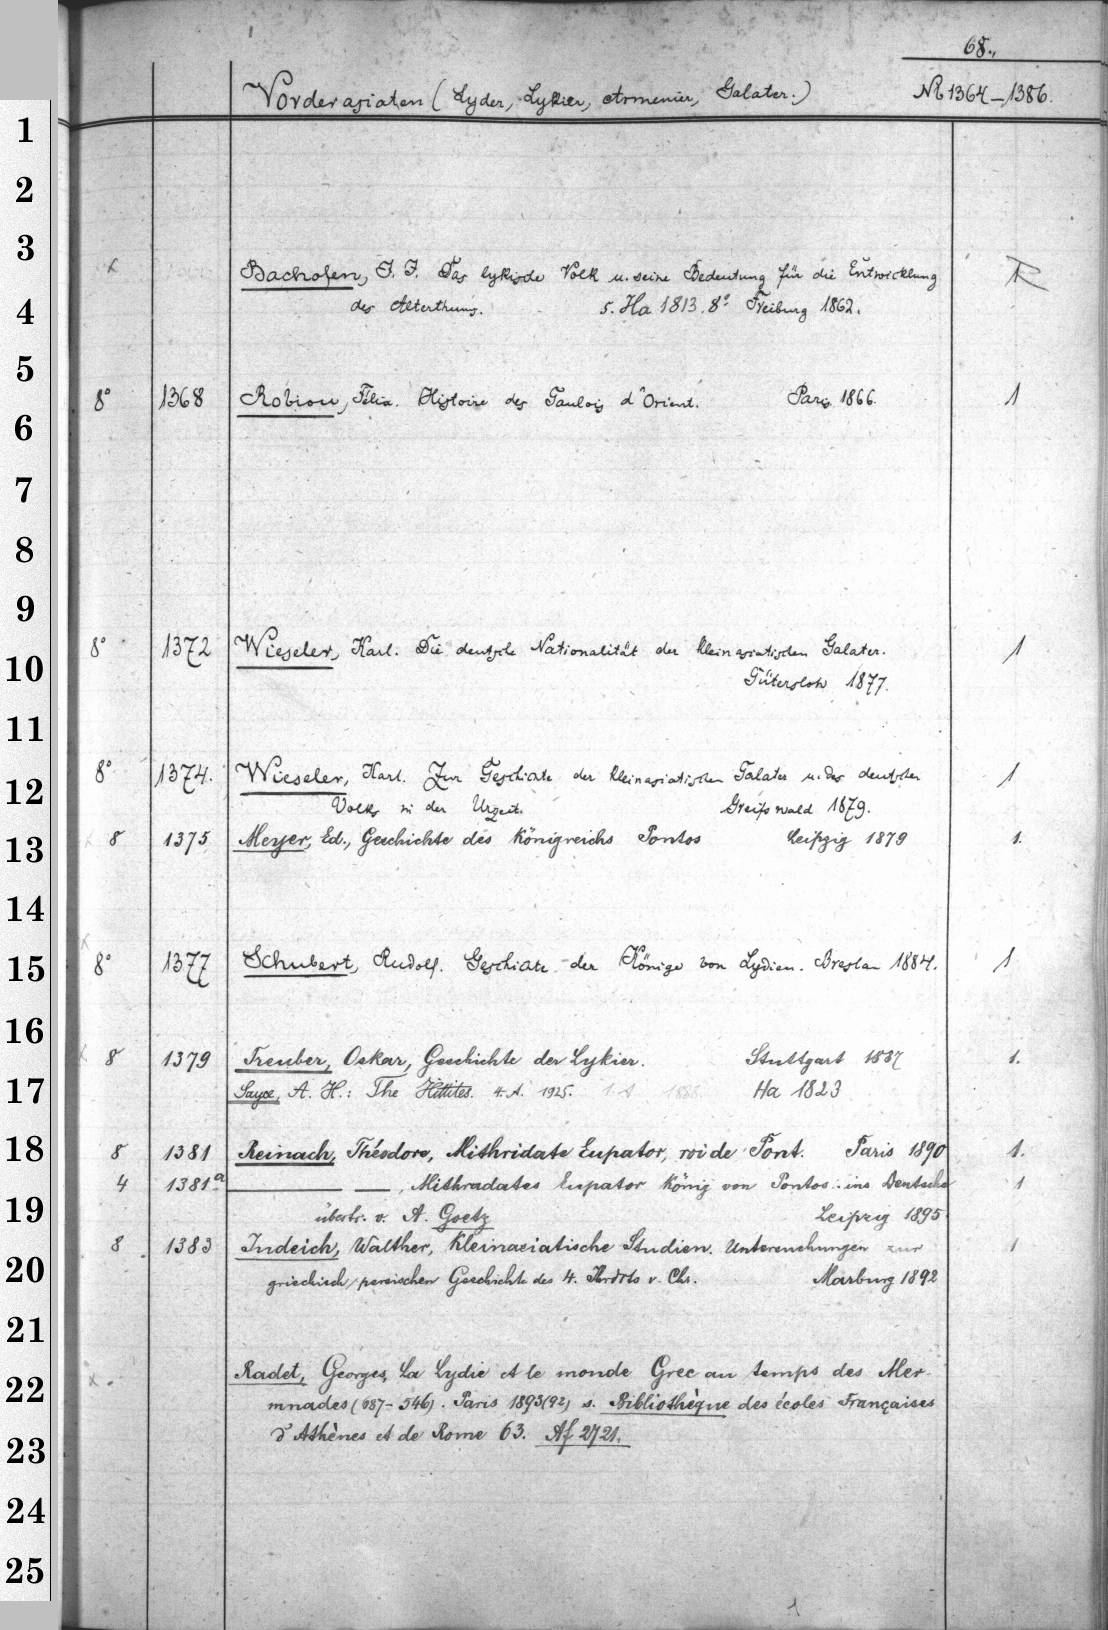 68.
Vorderasiaten (Lyder, Lykier, Armenier, Galater.) № 1364–1386.
1
2
3
Bachofen, J. J. Das lykische Volk u. seine Bedeutung für die Entwicklung
4 des Alterthums. s. Ha 1813. 8° Freiburg 1862.
5
8° 1368 Robiou, Félix. Histoire des Gaulois d'Orient. Paris 1866. 1
6
7
8
9
8° 1372 Wieseler, Karl. Die deutsche Nationalität der kleinasiatischen Galater. 1
10 Gütersloh 1877.
11
8° 1374. Wieseler, Karl. Zur Geschichte der kleinasiatischen Galater u. des deutschen 1
12 Volks in der Urzeit. Greifswald 1879.
13 8 1375 Meyer, Ed., Geschichte des Königreichs Pontos Leipzig 1879 1.
14
15 8° 1377 Schubert, Rudolf. Geschichte der Könige von Lydien. Breslau 1884. 1
16
8 1379 Treuber, Oskar, Geschichte der Lykier. Stuttgart 1887 1.
17 Sayce, A. H.: The Hittites. 4. A. 1925. 1. A 1888. Ha 1823
18 8 1381 Reinach, Théodore, Mithridate Eupator, roi de Pont. Paris 1890 1.
4 1381a — — , Mithradates Eupator König von Pontos : ins Deutsche 1
19 übertr. v. A. Goetz Leipzig 1895
8 1383 Judeich, Walther, Kleinasiatische Studien. Untersuchungen zur 1
20 griechisch-persischen Geschichte des 4. Jhrdts v. Chr. Marburg 1892
21
Radet, Georges, La Lydie et le monde Grec au temps des Mer-
22 mnades (687–546). Paris 1893(92) s. Bibliothèque des écoles Françaises
23 d'Athènes et de Rome 63. Af 2721.
24
25
1